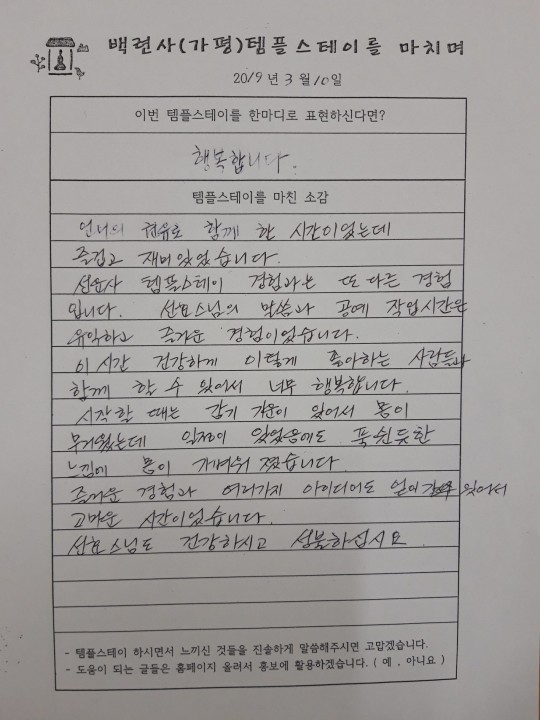 백련사(가평)템플스테이를 마치며
2019년 3월 10일
이번 템플스테이를 한마디로 표현하신다면?
행복합니다.
템플스테이를 마친 소감
언니의 권유로 함께 한 시간이었는데
즐겁고 재미있었습니다.
선운사 템플스테이 경험과는 또 다른 경험
입니다. 선효스님의 말씀과 공예 작업시간은
유익하고 즐거운 경험이었습니다.
이 시간 건강하게 이렇게 좋아하는 사람들과
함께 할 수 있어서 너무 행복합니다.
시작할 때는 감기 기운이 있어서 몸이
무거웠는데 일정이 있었음에도 푹쉰듯한
느낌에 몸이 가벼워 졌습니다.
즐거운 경험과 여러가지 아이디어도 얻어 갈수 있어서
고마운 시간이었습니다.
선효스님도 건강하시고 성불하십시요.
- 템플스테이 하시면서 느끼신 것들을 진솔하게 말씀해주시면 고맙겠습니다.
- 도움이 되는 글들은 홈페이지 올려서 홍보에 활용하겠습니다. ( 예 , 아니요 )